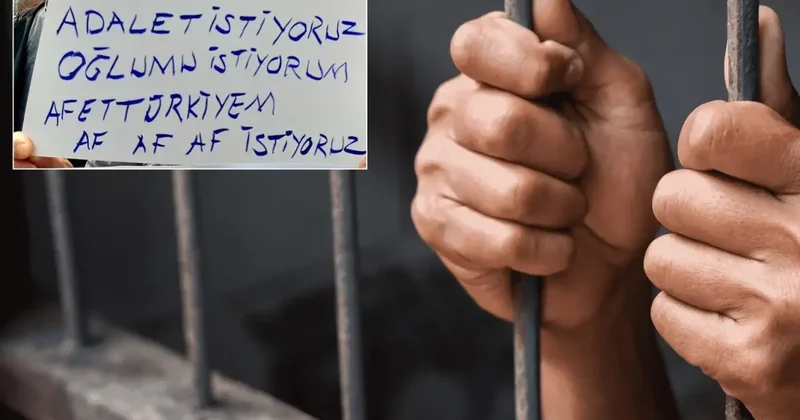 ADALET İSTİYORUZ
OĞLUMU İSTİYORUM
AFETTÜRKİYEM
AF AF AF İSTİYORUZ